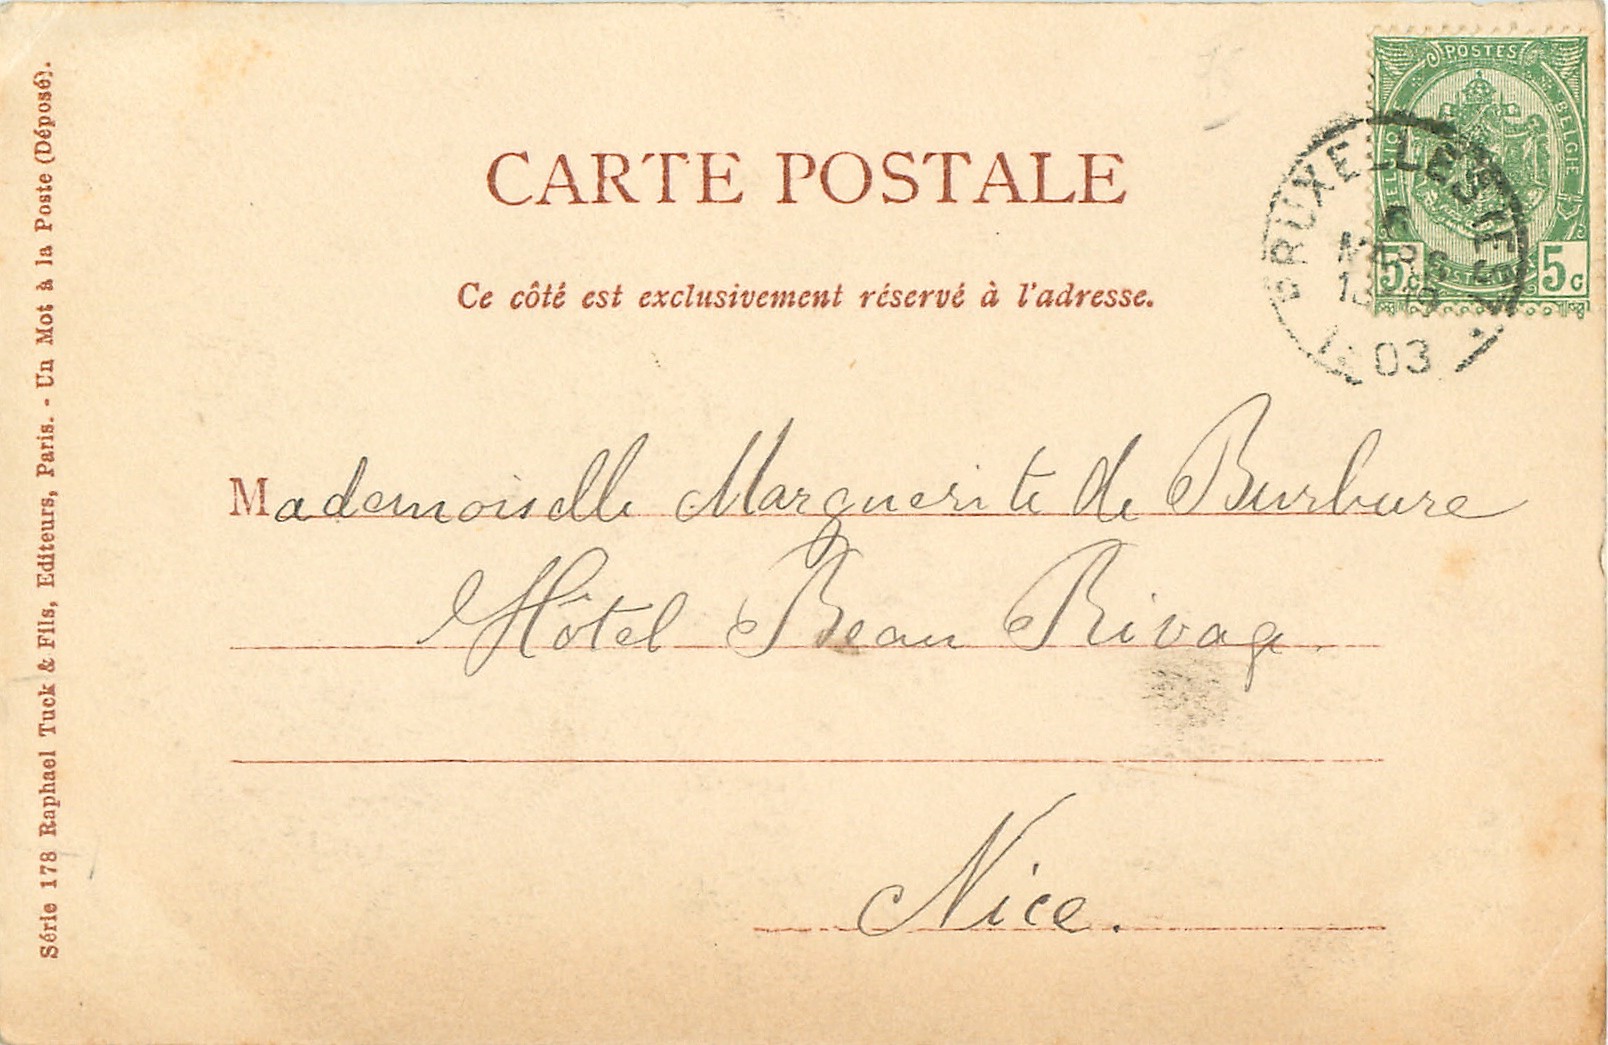 CARTE POSTALE
Ce côté est exclusivement réservé à l'adresse.
POSTES
BELGIE
5c 5c
BRUXELLES
03
Mademoiselle Marguerite de Burbure
Hôtel Beau Rivage.
Nice.
Série 178 Raphael Tuck & Fils, Editeurs, Paris. - Un Mot à la Poste (Déposé).